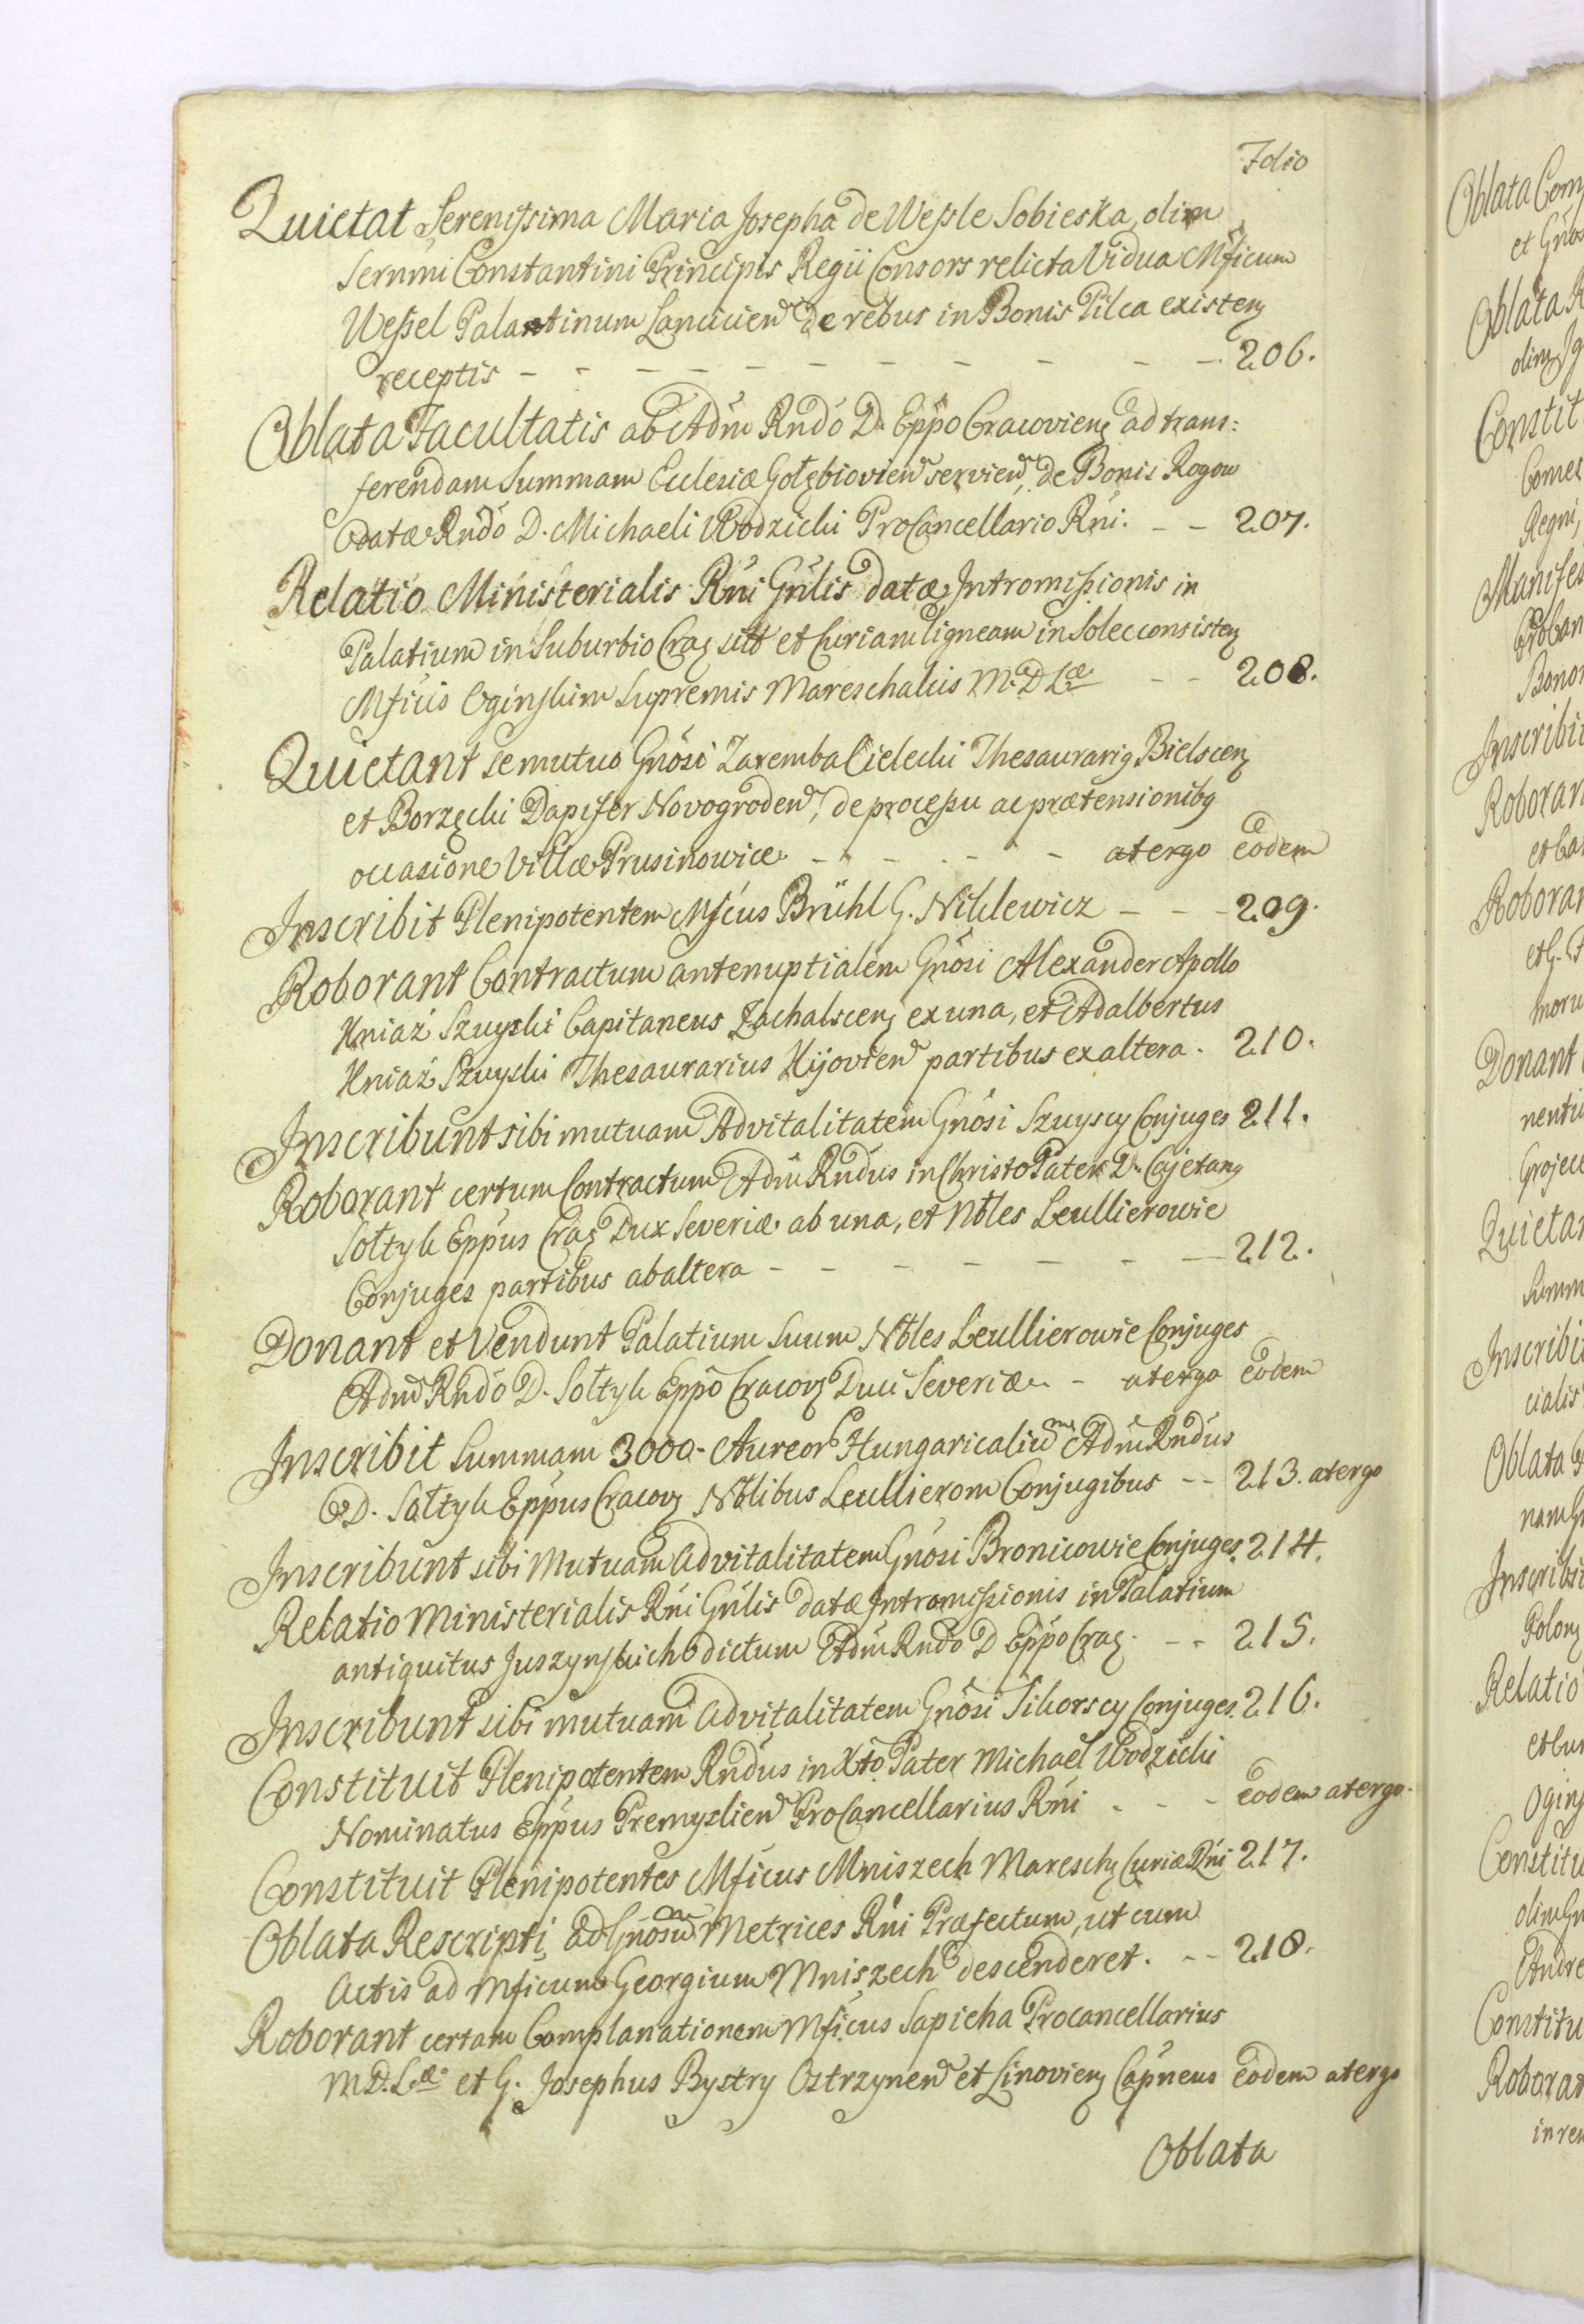 Folio
Quietat Serenissima Maria Josepha de Wessle Sobieska, olim
Sernmi Constantini Principis Regii Consors relicta Vidua Mficum
Wessel Palatinum Lancicien de rebus in Bonis Pilca existen
receptis - - - - - - - - - - 206.
Oblata Facultatis ab Adm Rndo D. Eppo Cracovien ad trans:
ferendam Summam Ecclesiæ Gołębiovien servien, de Bonis Rogow
datæ Rndo D. Michaeli Wodzicki ProCancellario Rni. - - 207.
Relatio Ministerialis Rni Gnlis datæ Intromissionis in
Palatium in Suburbio Crac sitt et Curiam ligneam in Solec consisten
Mficis Oginskim Supremis Mareschalcis M. D. Læ - - 208.
Quietant se mutuo Gnosi Zaremba Cielecki Thesaurarig Bielscen
et Borzęcki Dapifer Novogroden, de processu ac prætensionibg
occasione Villæ Prusinowice - - - - - - atergo eodem
Inscribit Plenipotentem Mficus Brühl G. Niklewicz - - - 209.
Roborant Contractum antenuptialem Gnosi Alexander Apollo
Kniaź Szuyski Capitaneus Zachalscen ex una, et Adalbertus
Kniaź Szuyski Thesaurarius Kijovien partibus ex altera. 210.
Inscribunt sibi mutuam Advitalitatem Gnosi Szuyscy Conjuges 211.
Roborant certum Contractum Adm Rndus in Christo Pater D. Cajetang
Sołtyk Eppus Crac Dux Severiæ ab una, et Nbles Leullierowie
Conjuges partibus ab altera - - - - - - - 212.
Donant et Vendunt Palatium Suum Nbles Leullierowie Conjuges
Adm Rndo D. Sołtyk Eppo Cracov Duci Severiæ - - atergo eodem
Inscribit Summam 3000. Aureor Hungaricaliu Adm Rndus
D. Sołtyk Eppus Cracov Nblibus Leullierom Conjugibus - - 213. atergo
Inscribunt sibi Mutuam Advitalitatem Gnosi Bronicowie Conjuges. 214.
Relatio Ministerialis Rni Gnlis datæ Intromissionis in Palatium
antiquitus Juszynskich dictum Adm Rndo D Eppo Crac. - - 215.
Inscribunt sibi mutuam Advitalitatem Gnosi Sikorscy Conjuges. 216.
Constituit Plenipotentem Rndus in Xto Pater Michael Wodzicki
Nominatus Eppus Premyslien ProCancellarius Rni - - - eodem atergo.
Constituit Plenipotentes Mficus Mniszech Maresch Curiæ Rni 217.
Oblata Rescripti, ad Gnosum Metrices Rni Præfectum, ut cum
Actis ad Mficum Georgium Mniszech descenderet. - - 218.
Roborant certam Complanationem Mficus Sapieha Procancellarius
M D. Læ et G. Josephus Bystry Ostrzynen et Linovien Capneus eodem atergo
Oblata